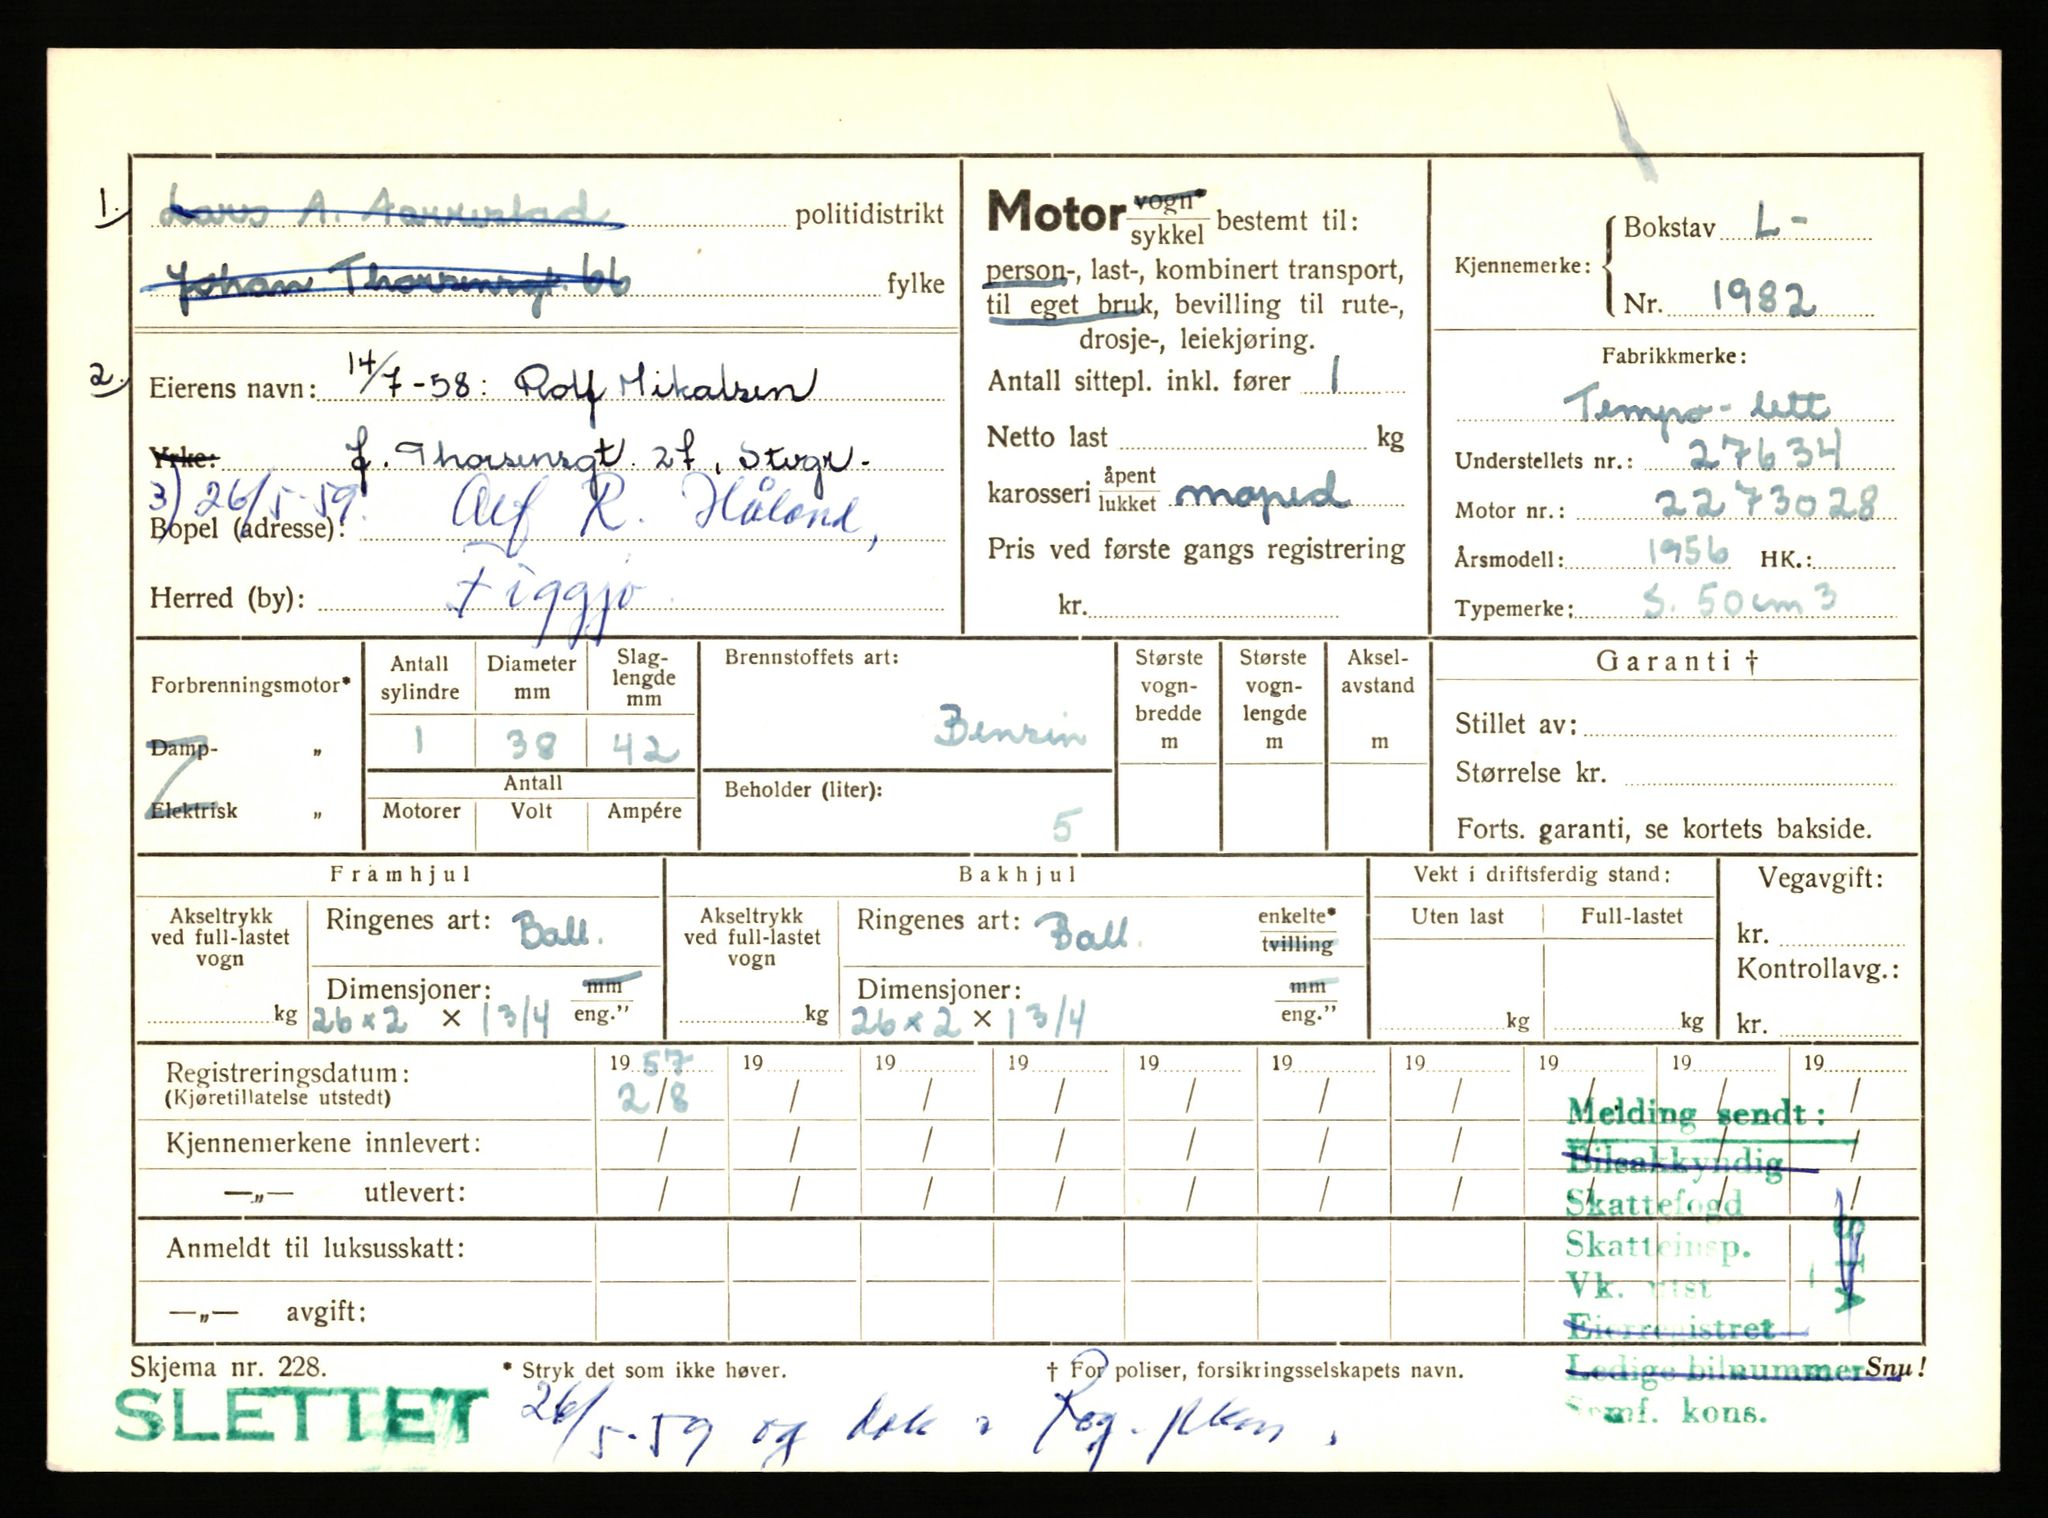 1. Lars A. Aarrestad politidistrikt
Johan Thorsensgt. 66 fylke
2. Eierens navn: 14/7-58: Rolf Mikalsen
Yrke: J. Thorsensgt. 27, Stvgr.
3) 26/5-59. Alf R. Håland,
Bopel (adresse):
Herred (by): Figgjo
Motor vogn* sykkel bestemt til:
person-, last-, kombinert transport,
til eget bruk, bevilling til rute-,
drosje-, leiekjøring.
Antall sittepl. inkl. fører 1
Netto last kg
karosseri åpent lukket moped
Pris ved første gangs registrering
kr.
Kjennemerke: Bokstav L-
Nr. 1982
Fabrikkmerke:
Tempo-lett
Understellets nr.: 27634
Motor nr.: 2273028
Årsmodell: 1956 HK.:
Typemerke: S. 50cm3
Forbrenningsmotor*
Damp- „
Elektrisk „
Antall sylindre Diameter mm Slag-lengde mm
1 38 42
Antall
Motorer Volt Ampére
Brennstoffets art:
Benzin
Beholder (liter):
5
Største vogn-bredde m
Største vogn-lengde m
Aksel-avstand m
Garanti †
Stillet av:
Størrelse kr.
Forts. garanti, se kortets bakside.
Framhjul
Akseltrykk ved full-lastet vogn
kg
Ringenes art: Ball.
Dimensjoner: mm
26 x 2 × 1 3/4 eng."
Bakhjul
Akseltrykk ved full-lastet vogn
kg
Ringenes art: Ball. enkelte* tvilling
Dimensjoner: mm
26 x 2 × 1 3/4 eng."
Vekt i driftsferdig stand:
Uten last Full-lastet
kg kg
Vegavgift:
kr.
Kontrollavg.:
kr.
Registreringsdatum: 19 57 19 19 19 19 19 19 19 19 19
(Kjøretillatelse utstedt) 2/8 / / / / / / / / /
Kjennemerkene innlevert: / / / / / / / / / /
—„— utlevert: / / / / / / / / / /
Anmeldt til luksusskatt:
—„— avgift:
Melding sendt:
Bilsakkyndig
Skattefogd
Skatteinsp.
Vk. utst
Eierregistret
Ledige bilnummer
Samf. kons.
Skjema nr. 228. * Stryk det som ikke høver. † For poliser, forsikringsselskapets navn. Snu!
SLETTET 26/5-59 og